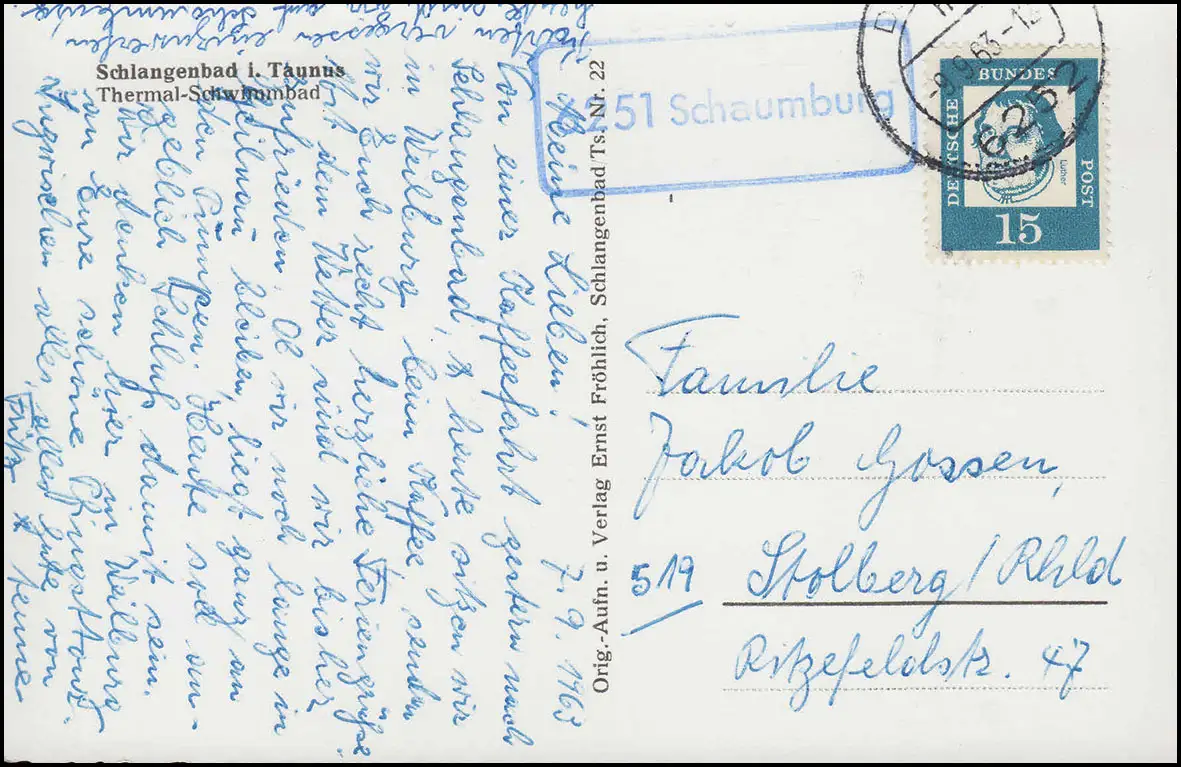 Schlangenbad i. Taunus
Thermal-Schwimmbad
7. 9. 1963
Meine Lieben!
Von einer Kaffeefahrt gestern nach
Schlangenbad, & heute sitzen wir
in Weilburg beim Kaffee, senden
wir Euch recht herzliche Feriengrüße
Mit dem Wetter sind wir bisher
zufrieden. Ob wir noch lange in
bleiben, liegt ganz an
den Heute soll an-
geblich Schluß damit sein.
Wir denken hier in Weilburg
an Eure schöne Pfingsttour.
Inzwischen alles, alles Gute von
Fritz & Hanne
Karten vergessen einzuwerfen
heute sind wir auf Schaumburg
Orig.-Aufn. u. Verlag Ernst Fröhlich, Schlangenbad/Ts. Nr. 22
6251 Schaumburg
-8.9.63-12
6252
DEUTSCHE
BUNDES
POST
Luther
15
Familie
Jakob Gossen,
519 Stolberg/Rhld
Ritzefeldstr. 47